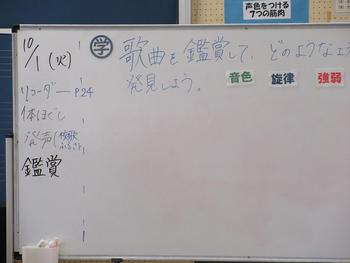 声色をつける
7つの筋肉
10/1(火)
リコーダー P24
体ほぐし
発声(校歌
ふるさと
鑑賞
学 歌曲を鑑賞して、どのような工
発見しよう。
音色 旋律 強弱